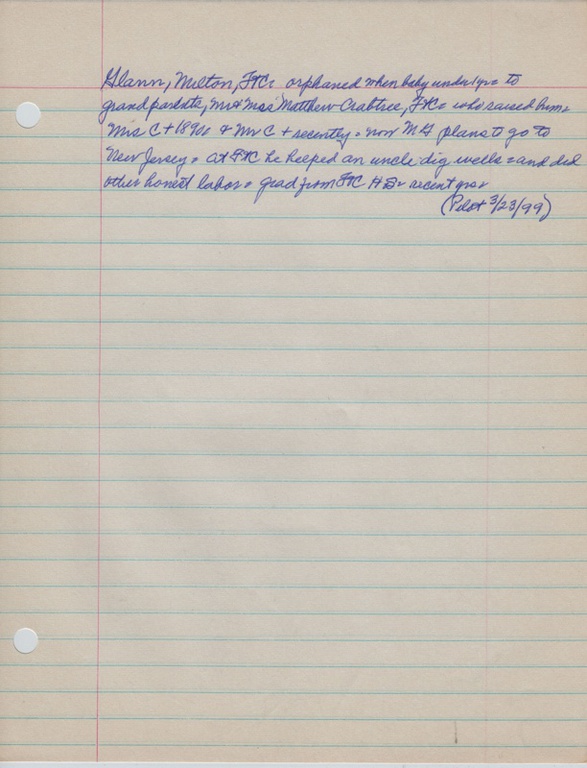 Glann, Milton, FtC = orphaned when baby under 1 yr = to
grandparents, Mr & Mrs Matthew Crabtree, FtC = who raised him =
Mrs C + 1890s & Mr C + recently = now M G plans to go to
New Jersey = at FtC he helped an uncle dig wells = and did
other honest labor = grad from FtC HS = recent yrs
(Pilot 3/23/99)